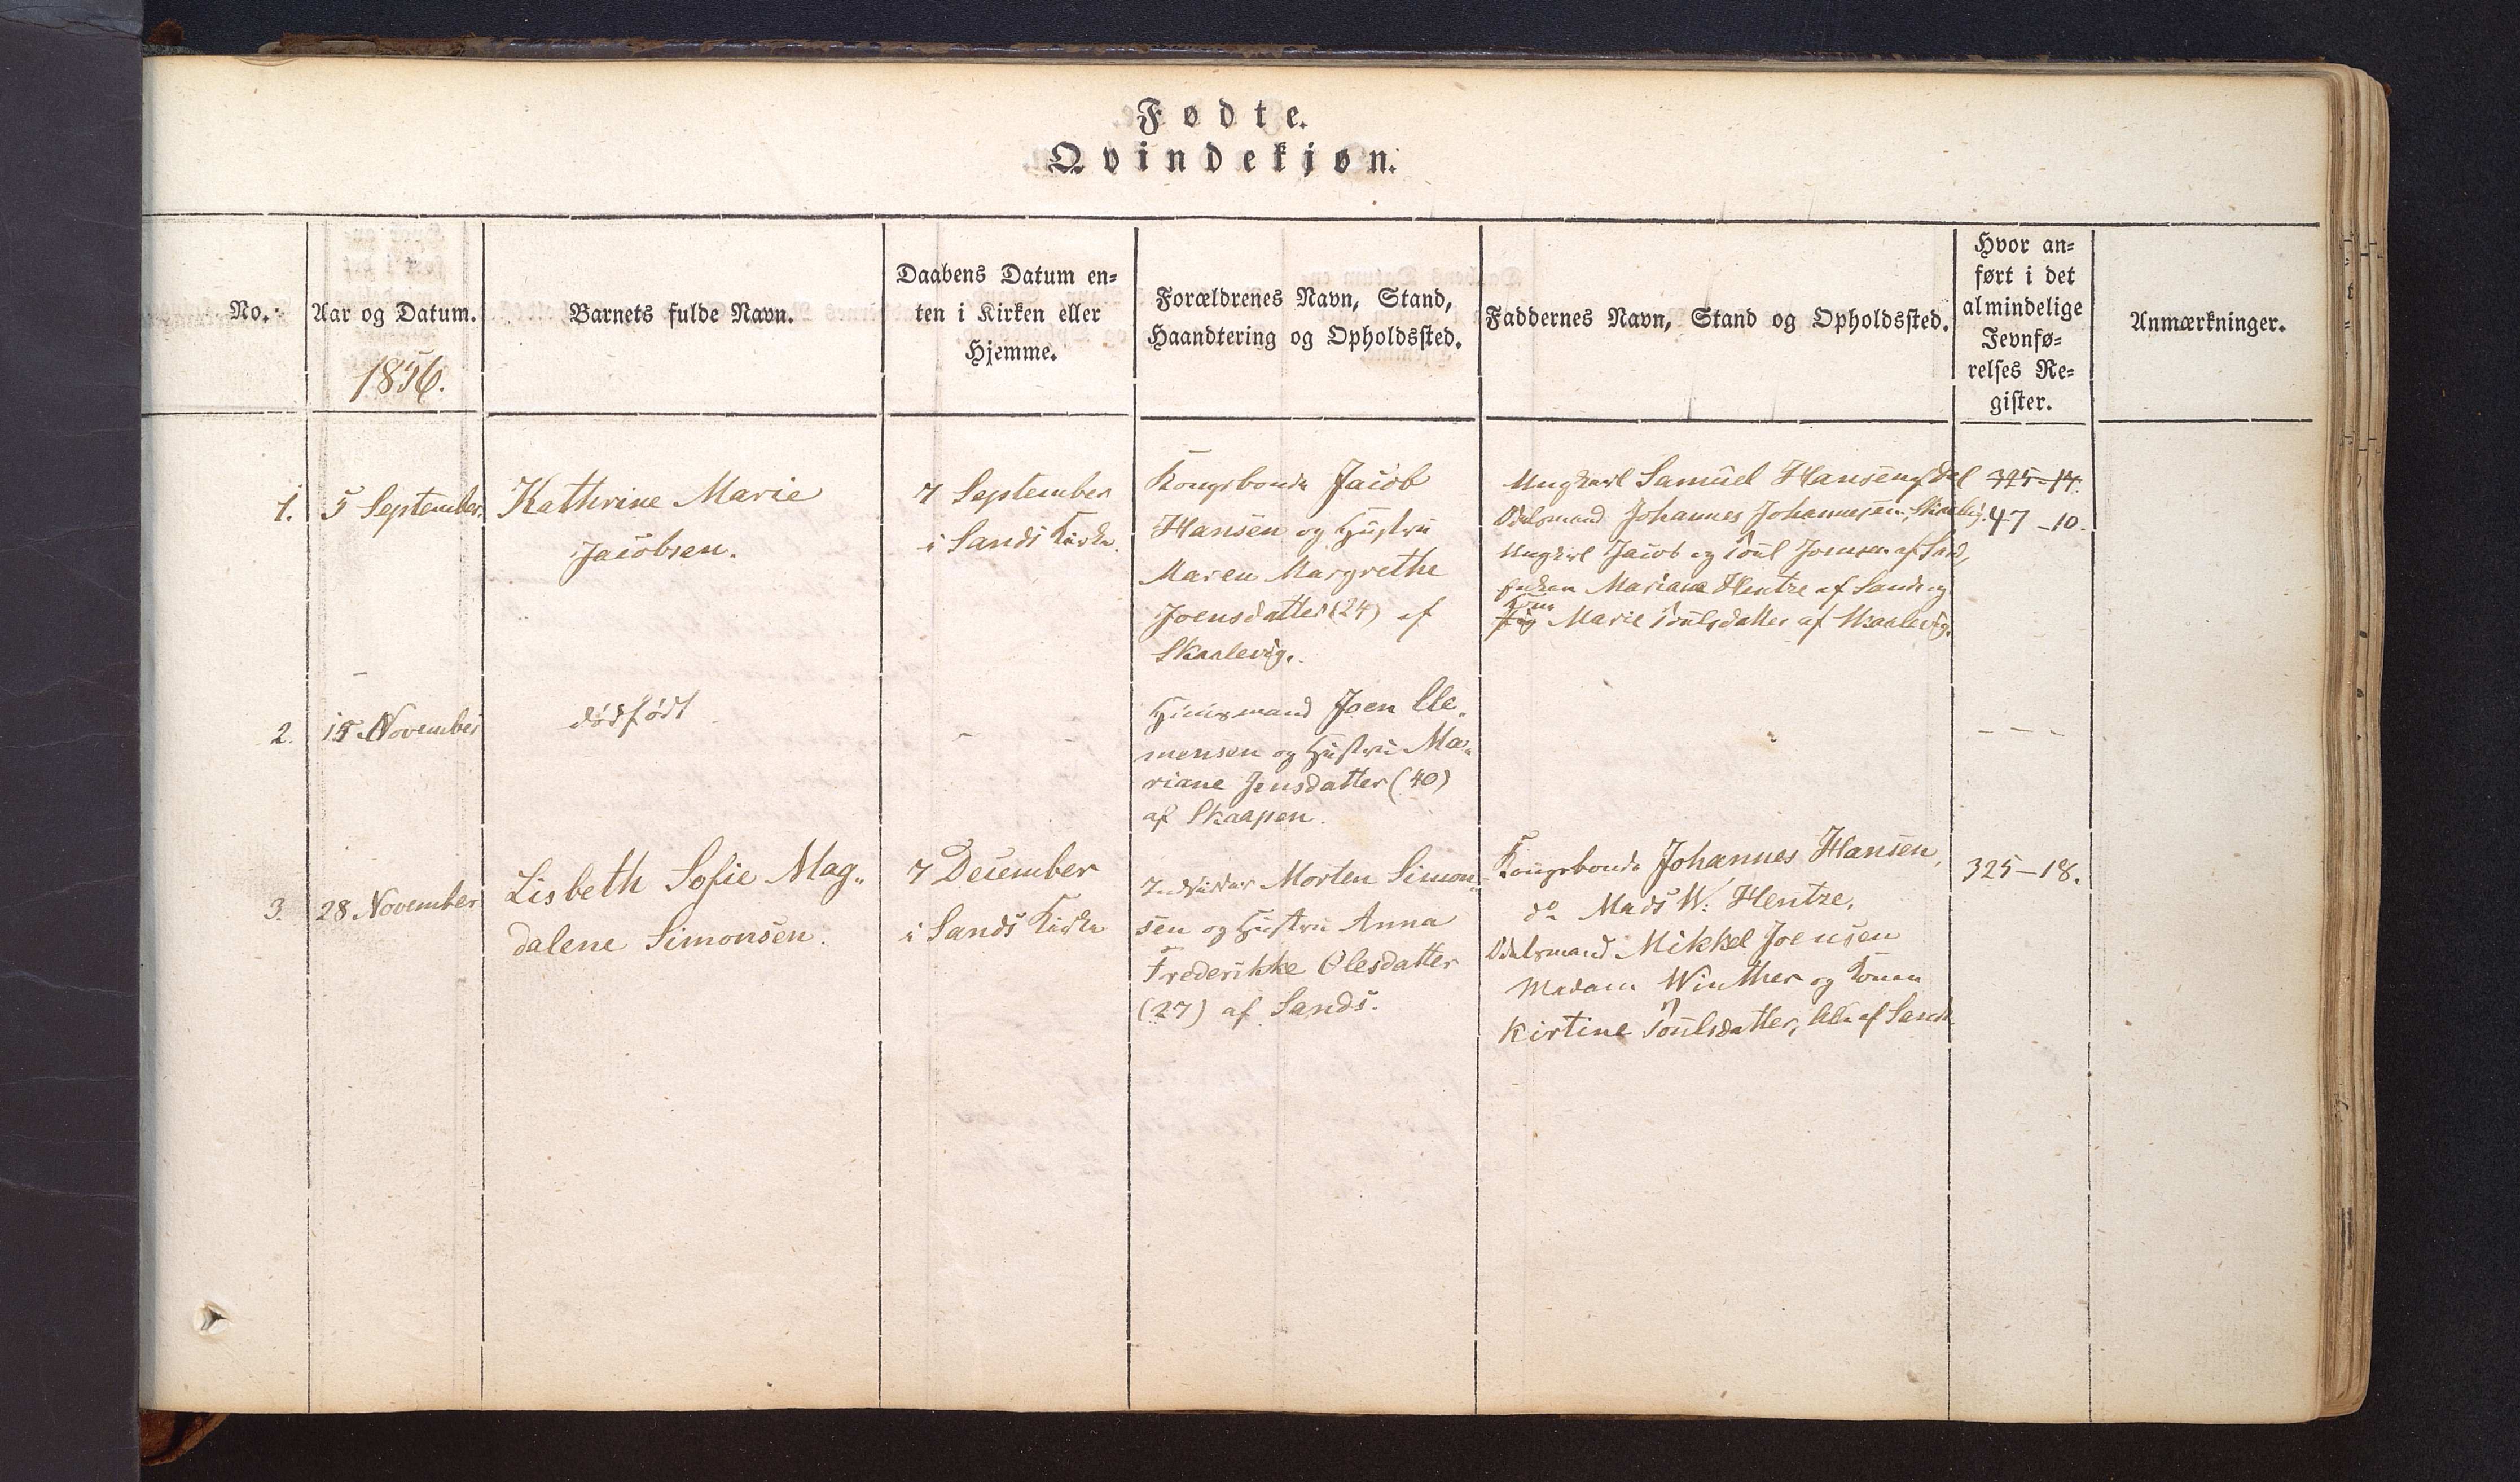 Fødte.
Qvindekjøn.
No.
Aar og Datum.
1856.
Barnets fulde Navn.
Daabens Datum en=
ten i Kirken eller
Hjemme.
Forældrenes Navn, Stand,
Haandtering og Opholdssted.
Faddernes Navn, Stand og Opholdssted.
Hvor an=
ført i det
almindelige
Jevnfø=
relses Re=
gister.
Anmærkninger.
1.
5 September
Kathrine Marie
Jacobsen.
7 September
i Sands Kirke.
Kongsbonde Jacob
Hansen og Hustru
Maren Margrethe
Joensdatter (24) af
Skaalevig.
Ungkarl Samuel Hansen af Dal
Odelsmand Johannes Johannesen, Skaalevig.
Ungkarl Jacob og Poul Joensen af Sand,
Mariane Hentze af Sand og
Kone
Marie Poulsdatter af Skaalevig.
325-17.
47-10.
2.
15 November
dødfødt
Huusmand Joen Cle-
mensen og Hustru Ma-
riane Jensdatter (40)
af Skaapen.
- - -
3.
28 November
Lisbeth Sofie Mag-
dalene Simonsen.
7 December
i Sands Kirke
Indsidder Morten Simon-
sen og Hustru Anna
Frederikke Olesdatter
(27) af Sands.
Kongsbonde Johannes Hansen,
do Mads W. Hentze,
Odelsmand Mikkel Joensen
Madam Winther og Konen
Kirtine Poulsdatter, Alle af Sand.
325-18.